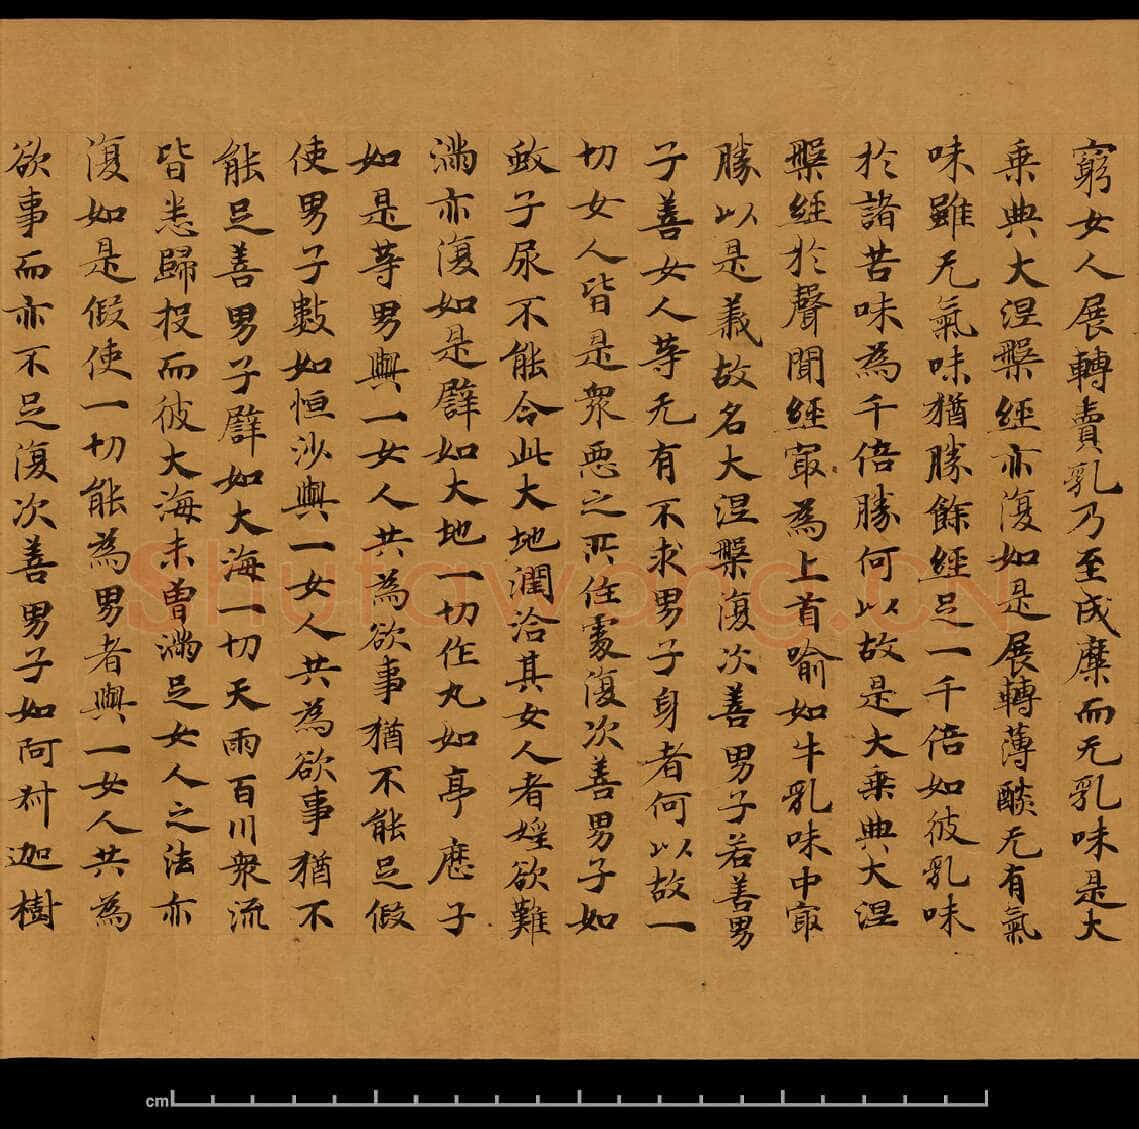 窮女人展轉賣乳乃至成糜而无乳味是大
乗典大涅槃經亦復如是展轉薄醶无有氣
味雖无氣味猶勝餘經足一千倍如彼乳味
於諸苦味為千倍勝何以故是大乗典大涅
槃經於聲聞經寂為上首喻如牛乳味中寂
勝以是義故名大涅槃復次善男子若善男
子善女人等无有不求男子身者何以故一
切女人皆是衆惡之所住處復次善男子如
蚊子尿不能令此大地潤洽其女人者婬欲難
滿亦復如是譬如大地一切作丸如亭歷子
如是等男與一女人共為欲事猶不能足假
使男子數如恒沙與一女人共為欲事猶不
能足善男子譬如大海一切天雨百川衆流
皆悉歸投而彼大海未曾滿足女人之法亦
復如是假使一切能為男者與一女人共為
欲事而亦不足復次善男子如阿叔迦樹
Shufawang.CN
cm